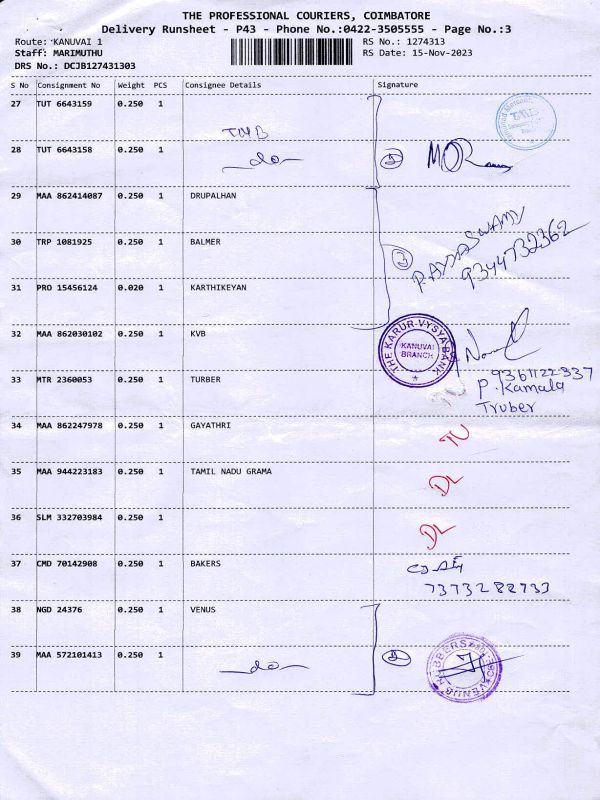 THE PROFESSIONAL COURIERS, COIMBATORE
Delivery Runsheet - P43 - Phone No.:0422-3505555 - Page No.:3
Route: KANUVAI 1 RS No.: 1274313
Staff: MARIMUTHU RS Date: 15-Nov-2023
DRS No.: DCJB127431303
S No Consignment No Weight PCS Consignee Details Signature
27 TUT 6643159 0.250 1
TMB
28 TUT 6643158 0.250 1
do
2
29 MAA 862414087 0.250 1 DRUPALHAN
30 TRP 1081925 0.250 1 BALMER
3
9344732362
31 PRO 15456124 0.020 1 KARTHIKEYAN
32 MAA 862030102 0.250 1 KVB
THE KARUR VYSYA BANK
KANUVAI
BRANCH
33 MTR 2360053 1 0.250 1 TURBER
9361122337
P. Kamala
Truber
34 MAA 862247978 0.250 1 GAYATHRI
35 MAA 944223183 0.250 1 TAMIL NADU GRAMA
DL
36 SLM 332703984 0.250 1
DL
37 CMD 70142908 0.250 1 BAKERS
7373282733
38 NGD 24376 0.250 1 VENUS
39 MAA 572101413 0.250 1
do
2